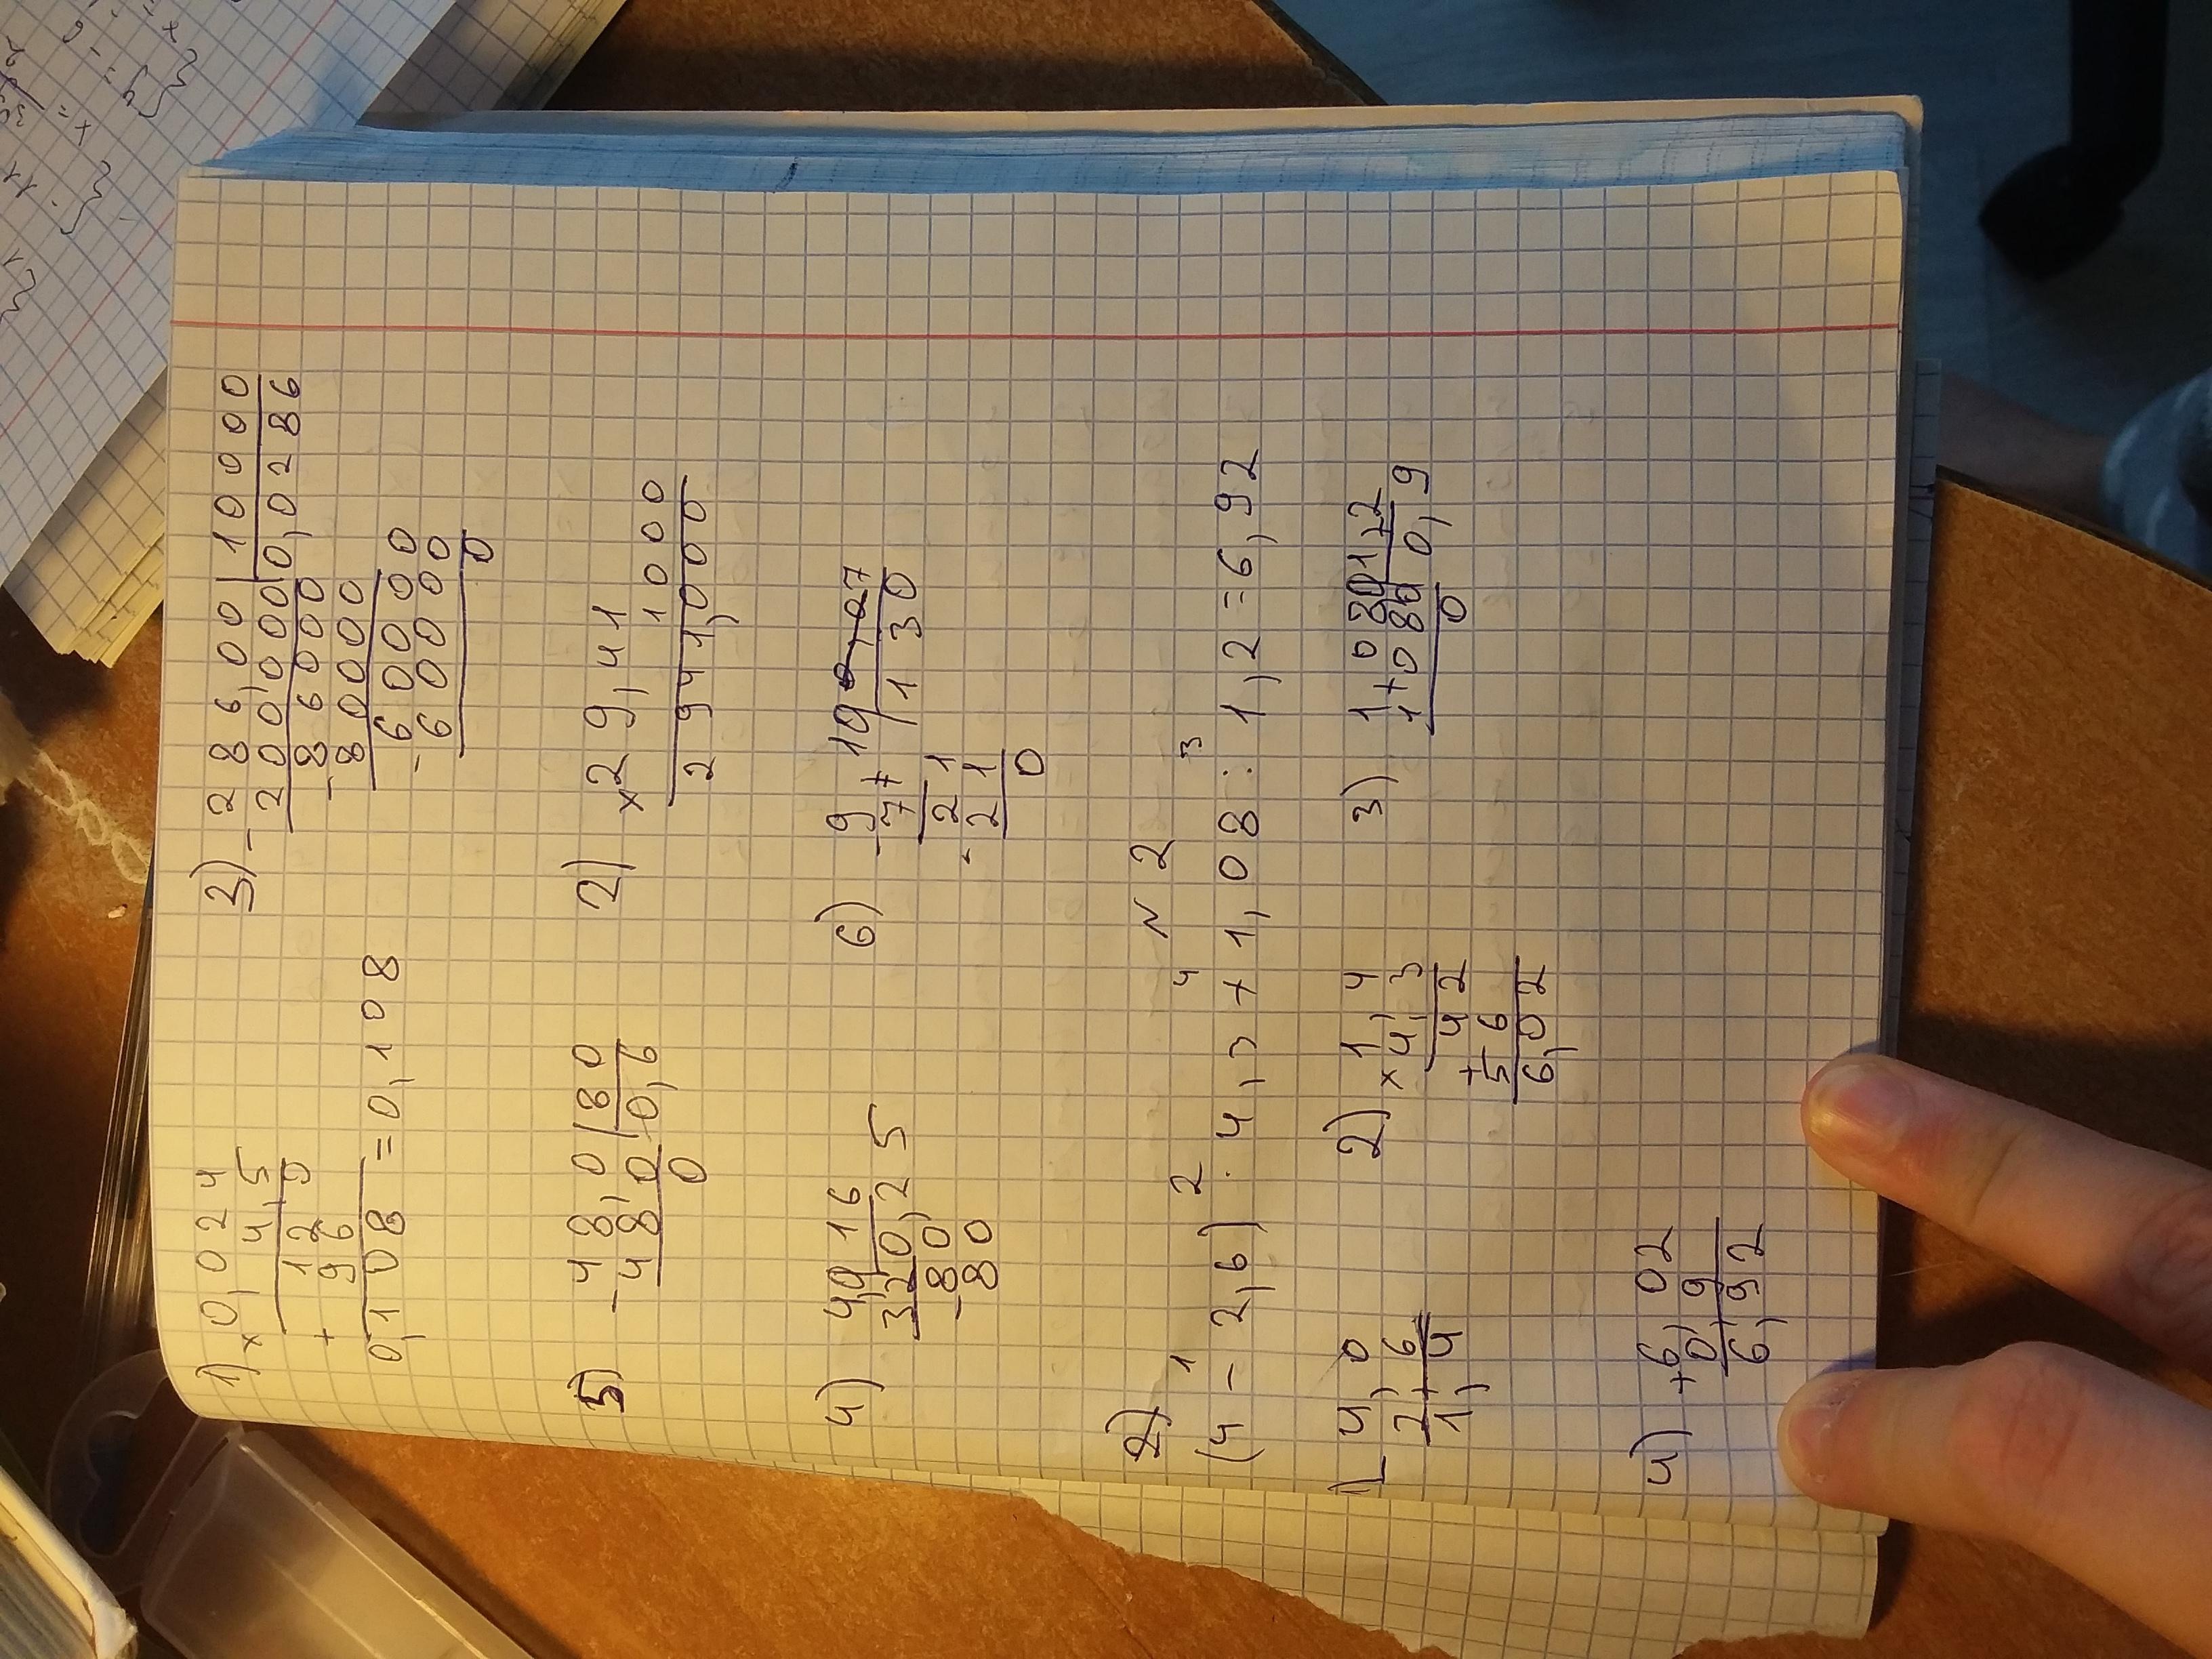 1) × 0,024
4,5
120
+ 96
0,1080 = 0,108
3) - 286,00 | 10000
200,00 | 0,0286
86000
- 80000
60000
- 60000
0
5) - 48,0 | 80
48 0 | 0,6
0
2) × 29,41
1000
2941,000
4) 4,0 | 16
32 | 0,25
- 80
80
6) 9 | 7
- 7 | 130
21
- 21
0
2) N 2
1 2 4 3
(4 - 2,6) · 4,3 + 1,08 : 1,2 = 6,92
1) - 4,0
2,6
1,4
2) × 1,4
4,3
42
+ 56
6,02
3) 1,08 | 1,2
1 08 | 0,9
0
4) + 6,02
0,9
6,92